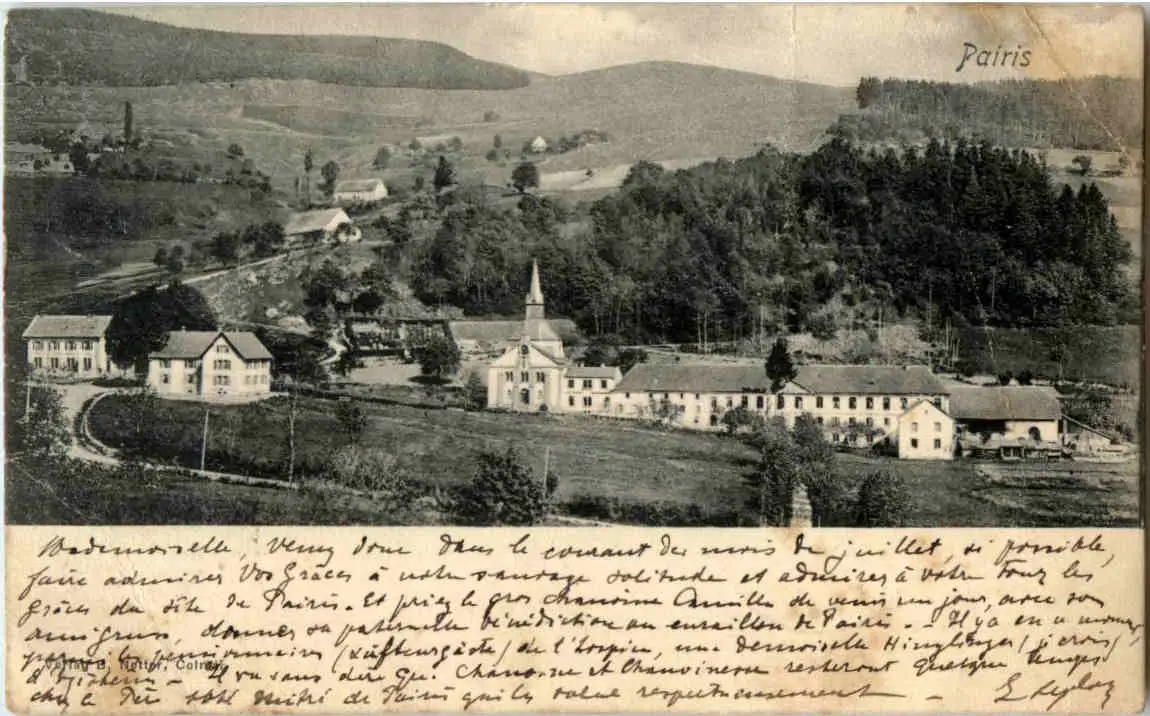 Pairis
Mademoiselle, Venez donc dans le courant du mois de juillet, si possible,
faire admirer Vos Grâces à notre sauvage solitude et admirer à votre tour les
grâces du site de Pairis. - Et priez le gros chanoine Camille de venir un jour, avec son
donner sa paternelle bénédiction au de Pairis. - Il y a en ce moment,
parmi les pensionnaires (Luftkurgäste) de l'Hospice, une demoiselle (je crois)
Verlag B. Netter, Colmar
- Il va sans dire que Chanoine et Chanoinesse resteront quelque temps
le Père abbé Mitré de Pairis qui les salue respectueusement -